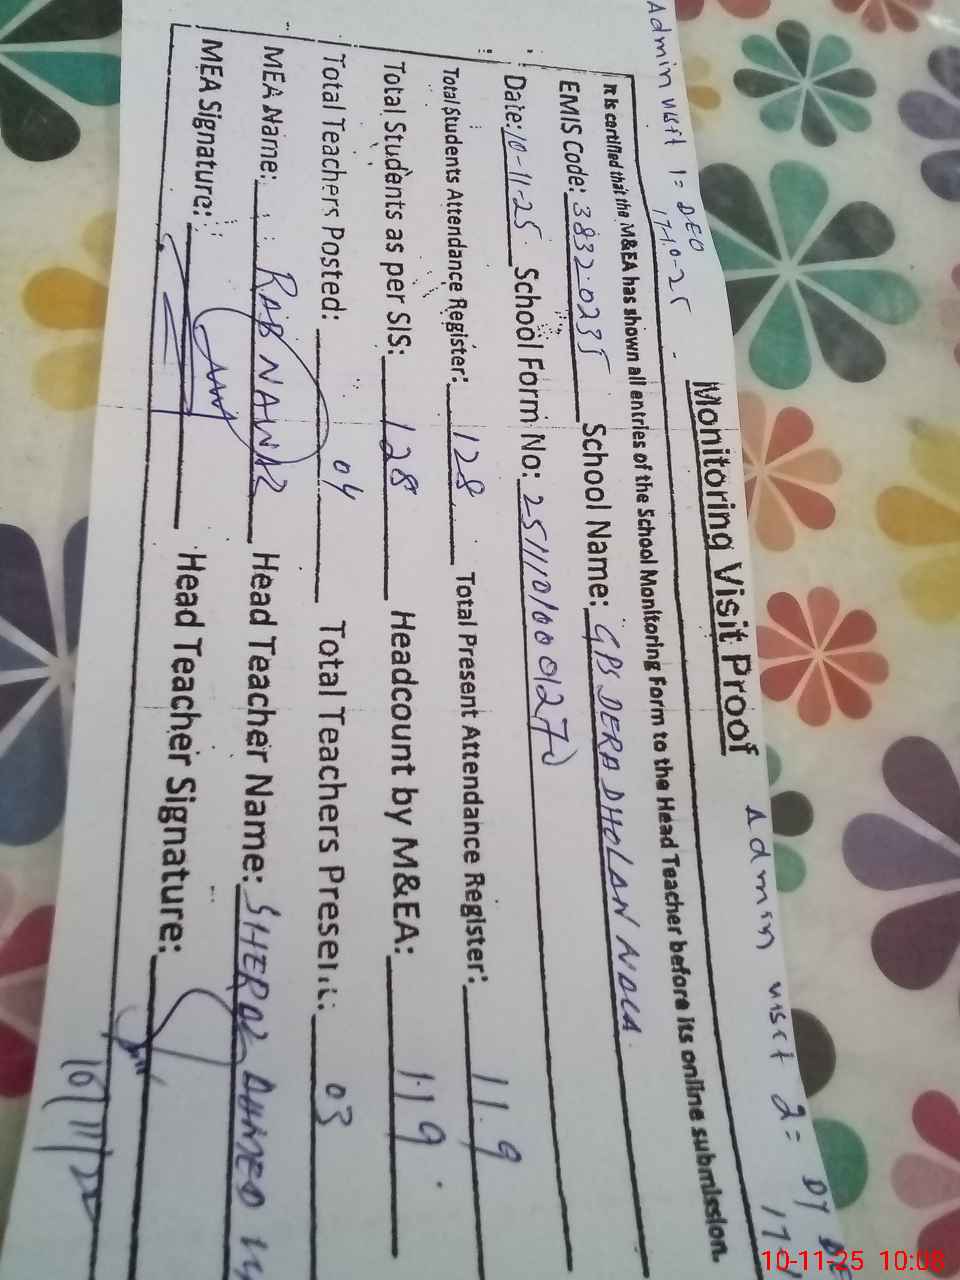 Admin visit 1 = DEO
17-10-25
Admin visit 2 = DY
Monitoring Visit Proof
It is certified that the M&EA has shown all entries of the School Monitoring Form to the Head Teacher before its online submission.
EMIS Code: 38320235 School Name: GPS DERA DHOLAN
Date: 10-11-25 School Form No:
Total Students Attendance Register: 128 Total Present Attendance Register: 119
Total Students as per SIS: 128 Headcount by M&EA: 119
Total Teachers Posted: 04 Total Teachers Present: 03
MEA Name: RAB NAWAZ Head Teacher Name: AHMED
MEA Signature: Head Teacher Signature:
10-11-25 10:08